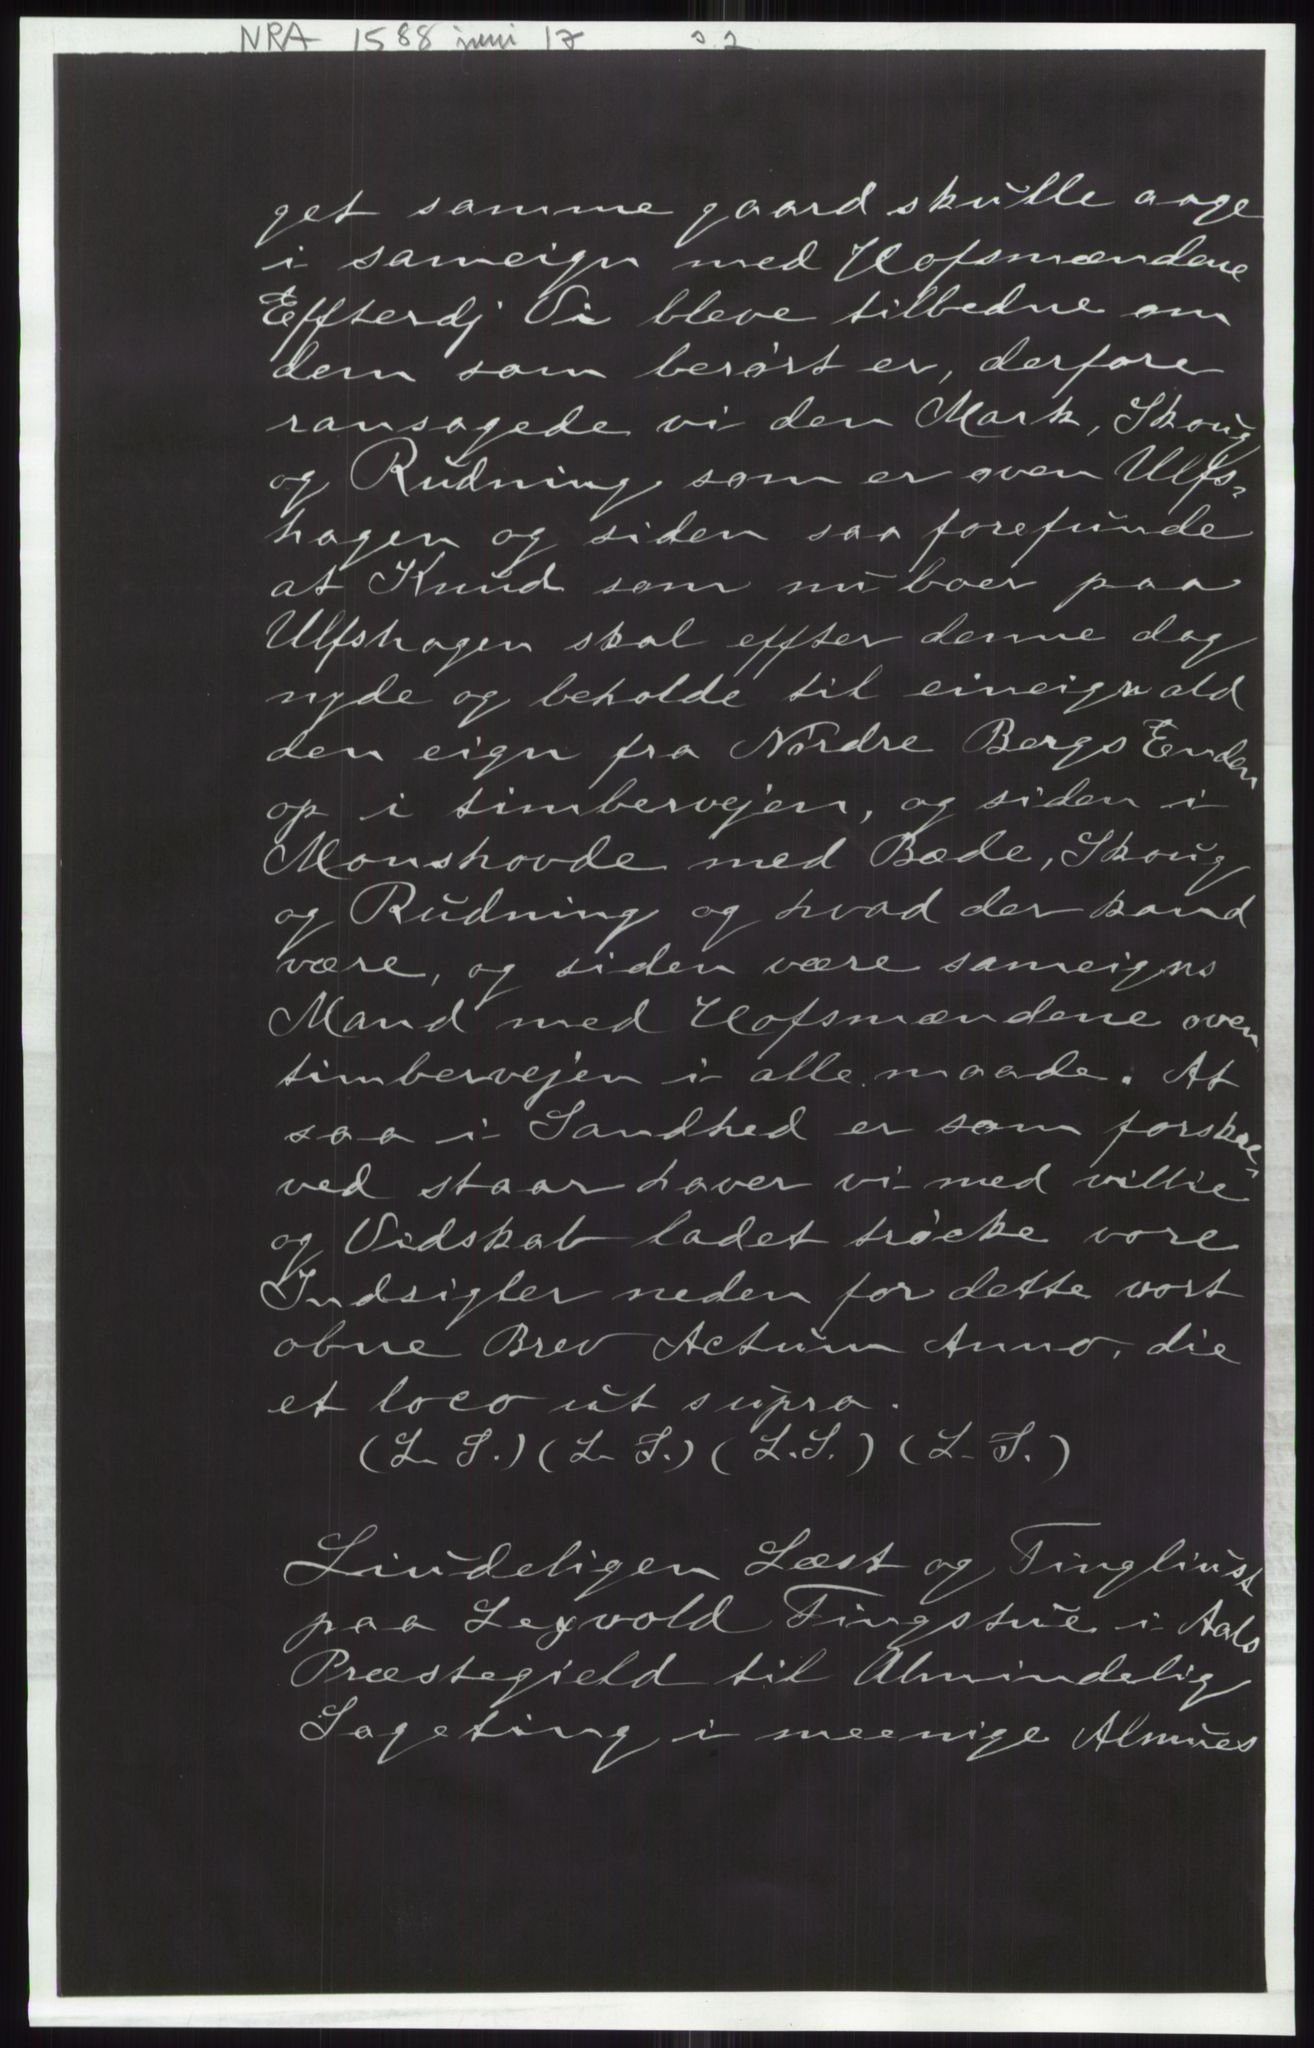 NRA 1588 juni 17 s 2
get samme gaard skulle aage
i sameign med Hofsmændene
Effterdj Vi bleve tilbedne om
dem som berørt er, derfore
ransagede vi den Mark, Skoug
og Rudning som er oven Ulfs-
hagen og siden saa forefunde
at Knud som nu boer paa
Ulfshagen skal effter denne dag
nyde og beholde til eineign ald
den eign fra Nordre Bergs Enden
op i timbervejen, og siden i
Monshovde med Bæde, Skoug
og Rudning og hvad der kand
være, og siden være sameigns
Mand med Hofsmændene oven
timbervejen i alle maade. At
saa i Sandhed er som forskre-
ved staar haver vi med villie
og Vidskab ladet trøcke vore
Indsigler neden for dette vort
obne Brev Actum Anno, die
et loco ut supra.
(L. S.) (L. S.) (L. S.) (L. S.)
Liudeligen Læst og Tingliust
paa Lexvold Tingstue i Aals
Præstegield til Almindelig
Sageting i meenige Almues